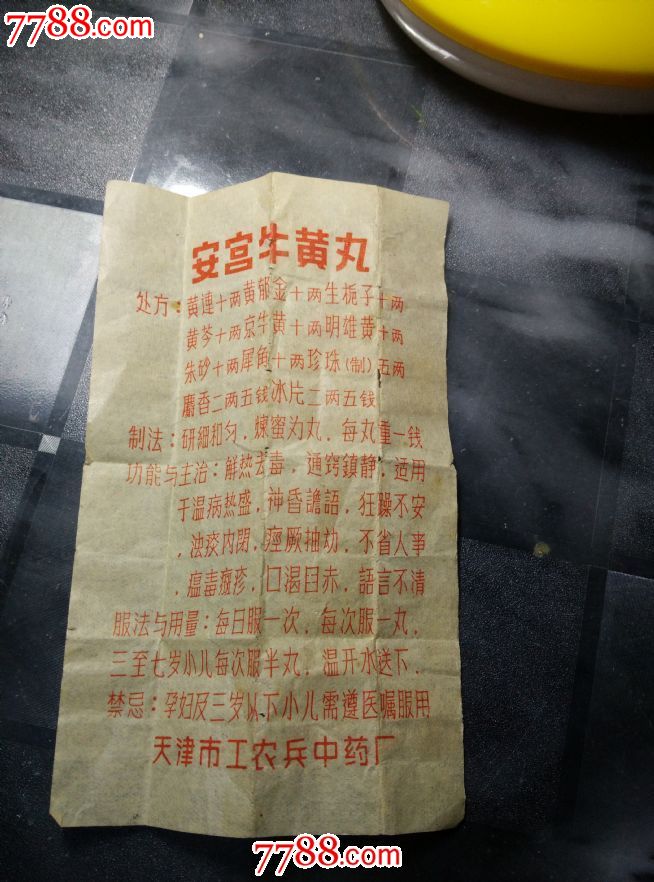 7788.com
7788.com
安宫牛黄丸
处方:黄連十两黄郁金十两生栀子十两
黄芩十两京牛黄十两明雄黄十两
朱砂十两犀角十两珍珠(制)五两
麝香二两五钱冰片二两五钱
制法:研細和匀,煉蜜为丸,每丸重一钱
功能与主治:解热去毒,通窍鎮静,适用
于温病热盛,神昏譫語,狂躁不安
,浊痰内閉,痙厥抽劝,不省人事
,瘟毒癍疹,口渴目赤,語言不清
服法与用量:每日服一次,每次服一丸,
三至七岁小儿每次服半丸,温开水送下.
禁忌:孕妇及三岁以下小儿需遵医嘱服用
天津市工农兵中药厂
7788.com